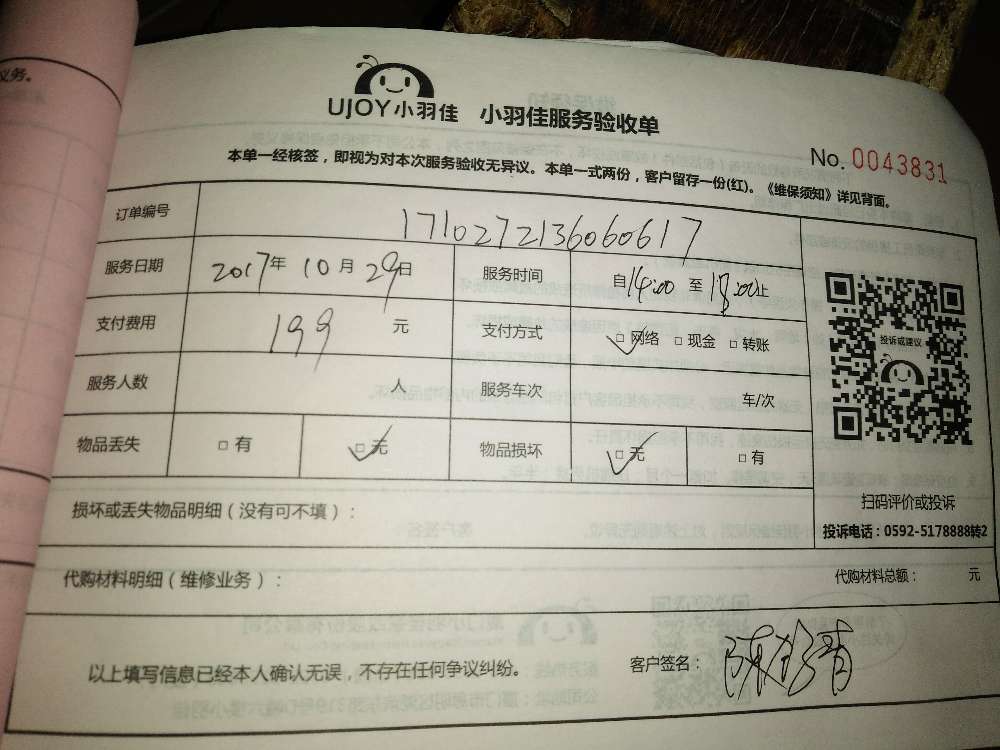 议务。
UJOY小羽佳 小羽佳服务验收单
No. 0043831
本单一经核签，即视为对本次服务验收无异议。本单一式两份，客户留存一份(红)。《维保须知》详见背面。
订单编号 1710272136060617
服务日期 2017年 10月 29日 服务时间 自14:00 至 18:00止
支付费用 199 元 支付方式 □网络 □现金 □转账
投诉或建议
服务人数 人 服务车次 车/次
物品丢失 □有 □无 物品损坏 □无 □有
扫码评价或投诉
损坏或丢失物品明细（没有可不填）：
投诉电话：0592-5178888转2
代购材料明细（维修业务）： 代购材料总额： 元
以上填写信息已经本人确认无误，不存在任何争议纠纷。 客户签名：